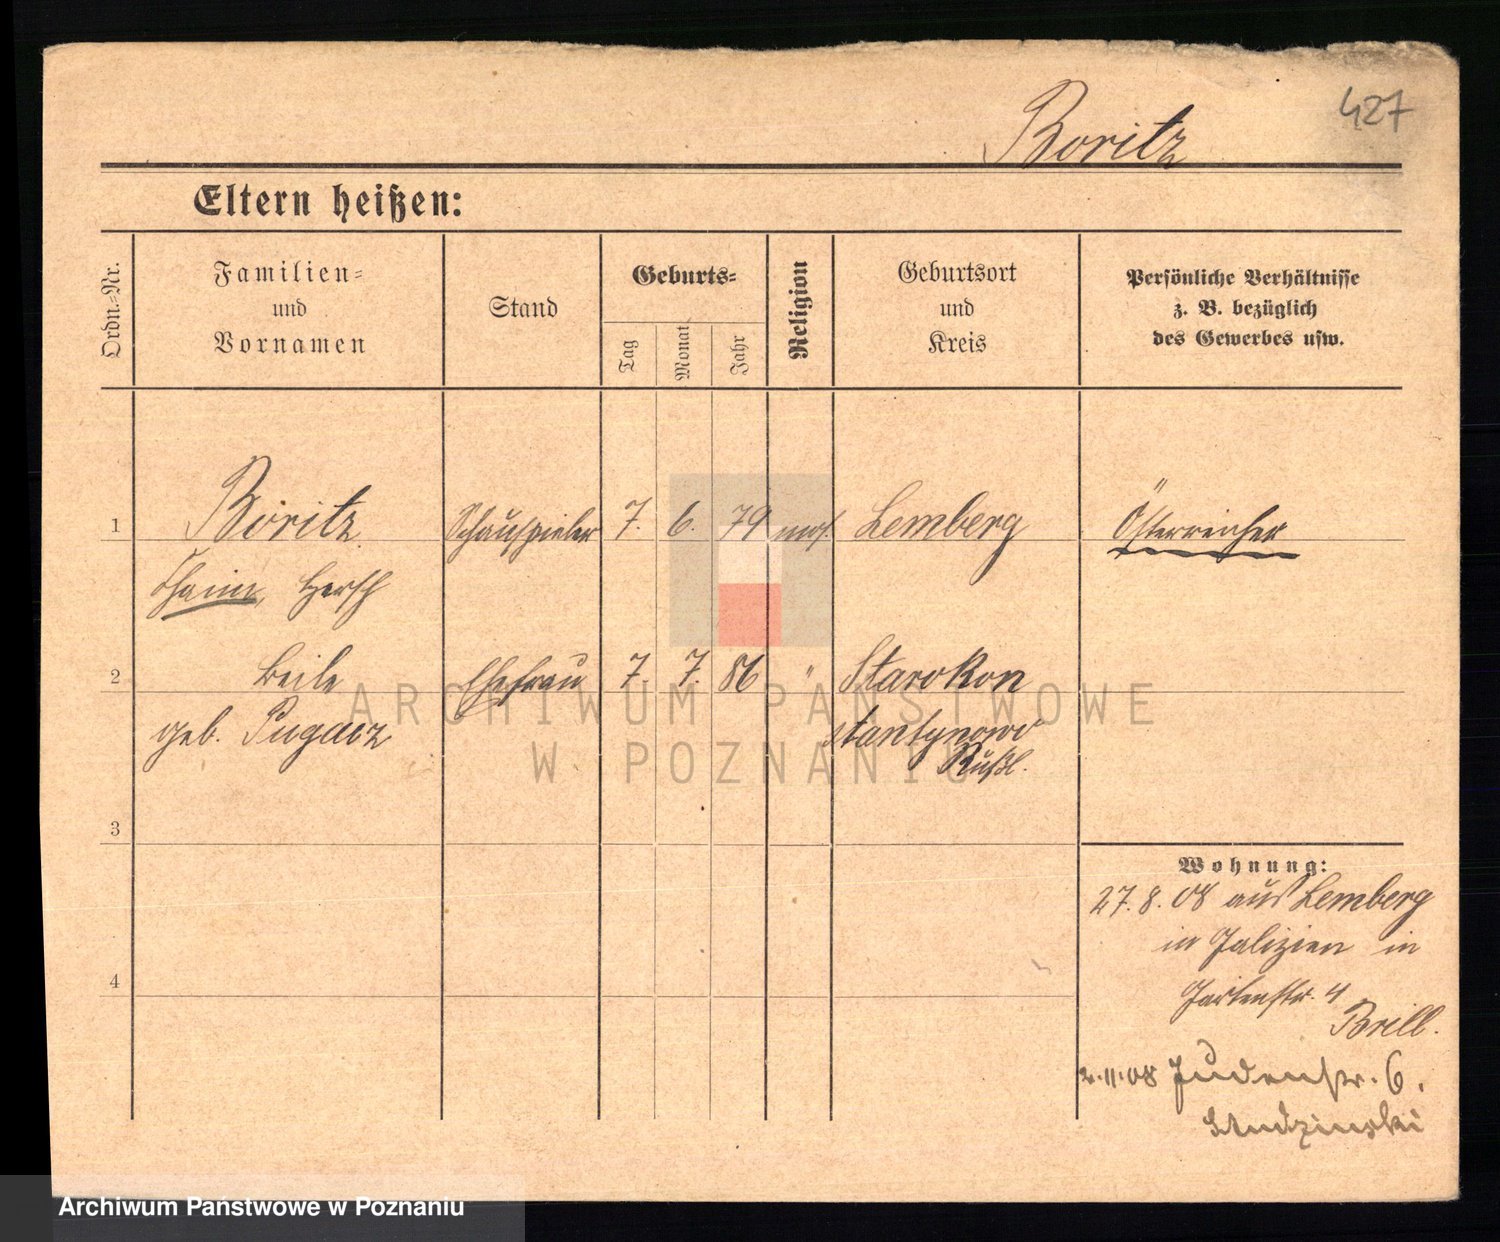 427
Boritz
Eltern heißen:
Ordn.-Nr.
Familien-
und
Vornamen
Stand
Geburts-
Tag
Monat
Jahr
Religion
Geburtsort
und
Kreis
Persönliche Verhältnisse
z. B. bezüglich
des Gewerbes usw.
1 Boritz Schauspieler 7. 6. 79 mos. Lemberg Österreicher
Chaim, Hersch
2 Beile Ehefrau 7. 7. 86 " Starokon
geb. Pugacz stantynowo
Rußl.
3
Wohnung:
27. 8. 08 aus Lemberg
in Galizien in
4
Gartenstr. 4
Brill.
2.11.08 Judenstr. 6.
ARCHIWUM PAŃSTWOWE
W POZNANIU
Archiwum Państwowe w Poznaniu